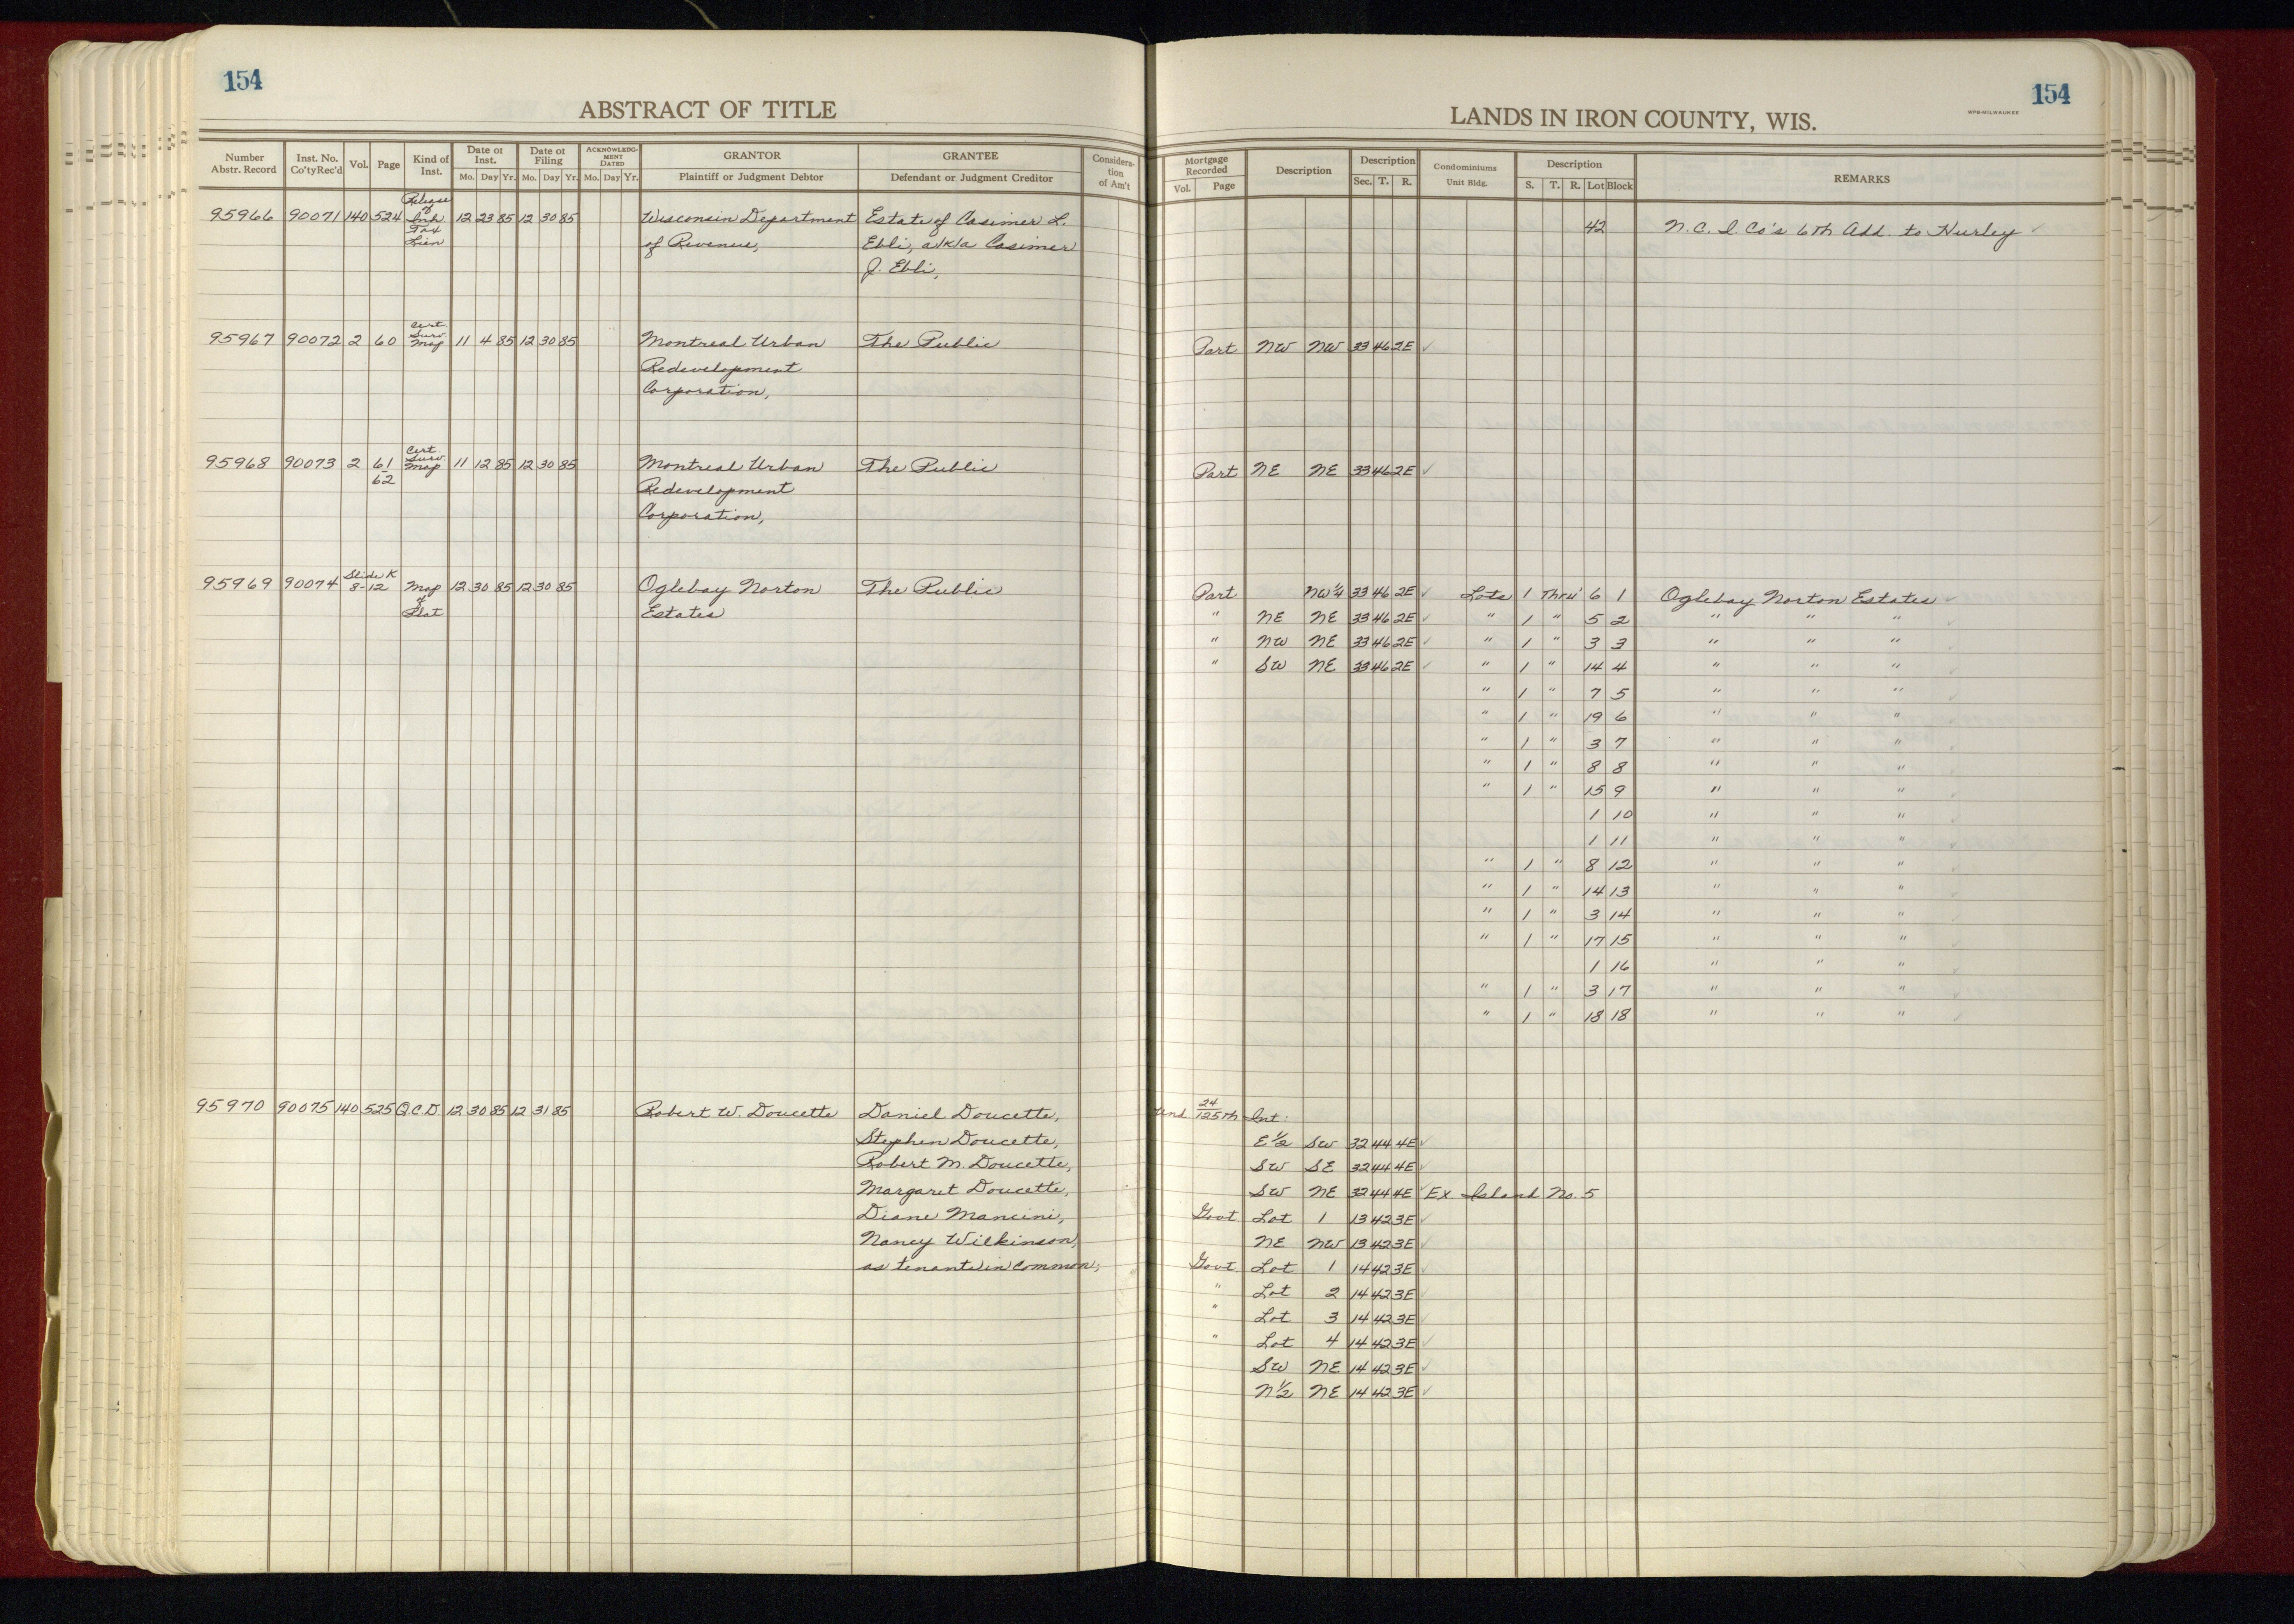 154
ABSTRACT OF TITLE
Number Abstr. Record Inst. No. Co'ty Rec'd Vol. Page Kind of Inst. Date of Inst. Mo. Day Yr. Date of Filing Mo. Day Yr. ACKNOWLEDG-MENT DATED Mo. Day Yr. GRANTOR Plaintiff or Judgment Debtor GRANTEE Defendant or Judgment Creditor Considera-tion of Am't
95966 90071 140 524 Release of Inh Tax Lien 12 23 85 12 30 85 Wisconsin Department Estate of Casimer L.
of Revenue, Ebli, a/k/a Casimer
J. Ebli,
95967 90072 2 60 Cert. Surv. Map 11 4 85 12 30 85 Montreal Urban The Public
Redevelopment
Corporation,
95968 90073 2 61-62 Cert. Surv. Map 11 12 85 12 30 85 Montreal Urban The Public
Redevelopment
Corporation,
95969 90074 Slide K 8-12 Map of Plat 12 30 85 12 30 85 Oglebay Norton The Public
Estates
95970 90075 140 525 Q.C.D. 12 30 85 12 31 85 Robert W. Doucette Daniel Doucette,
Stephen Doucette,
Robert M. Doucette,
Margaret Doucette,
Diane Mancini,
Nancy Wilkinson,
as tenants in common,
154
WPB-MILWAUKEE
LANDS IN IRON COUNTY, WIS.
Mortgage Recorded Vol. Page Description Description Sec. T. R. Condominiums Unit Bldg. Description S. T. R. Lot Block REMARKS
42 N.C.I. Co's 6th Add. to Hurley ✓
Part NW NW 33 46 2E ✓
Part NE NE 33 46 2E ✓
Part NW¼ 33 46 2E ✓ Lots 1 Thru' 6 1 Oglebay Norton Estates ✓
" NE NE 33 46 2E ✓ " 1 " 5 2 " " " ✓
" NW NE 33 46 2E ✓ " 1 " 3 3 " " " ✓
" SW NE 33 46 2E ✓ " 1 " 14 4 " " " ✓
" 1 " 7 5 " " " ✓
" 1 " 19 6 " " " ✓
" 1 " 3 7 " " " ✓
" 1 " 8 8 " " " ✓
" 1 " 15 9 " " " ✓
1 10 " " " ✓
1 11 " " " ✓
" 1 " 8 12 " " " ✓
" 1 " 14 13 " " " ✓
" 1 " 3 14 " " " ✓
" 1 " 17 15 " " " ✓
1 16 " " " ✓
" 1 " 3 17 " " " ✓
" 1 " 18 18 " " " ✓
Und. 24/125th Int:
E½ SW 32 44 4E ✓
SW SE 32 44 4E ✓
SW NE 32 44 4E ✓ Ex Island No. 5
Govt Lot 1 13 42 3E ✓
NE NW 13 42 3E ✓
Govt Lot 1 14 42 3E ✓
" Lot 2 14 42 3E ✓
" Lot 3 14 42 3E ✓
" Lot 4 14 42 3E ✓
SW NE 14 42 3E ✓
N½ NE 14 42 3E ✓